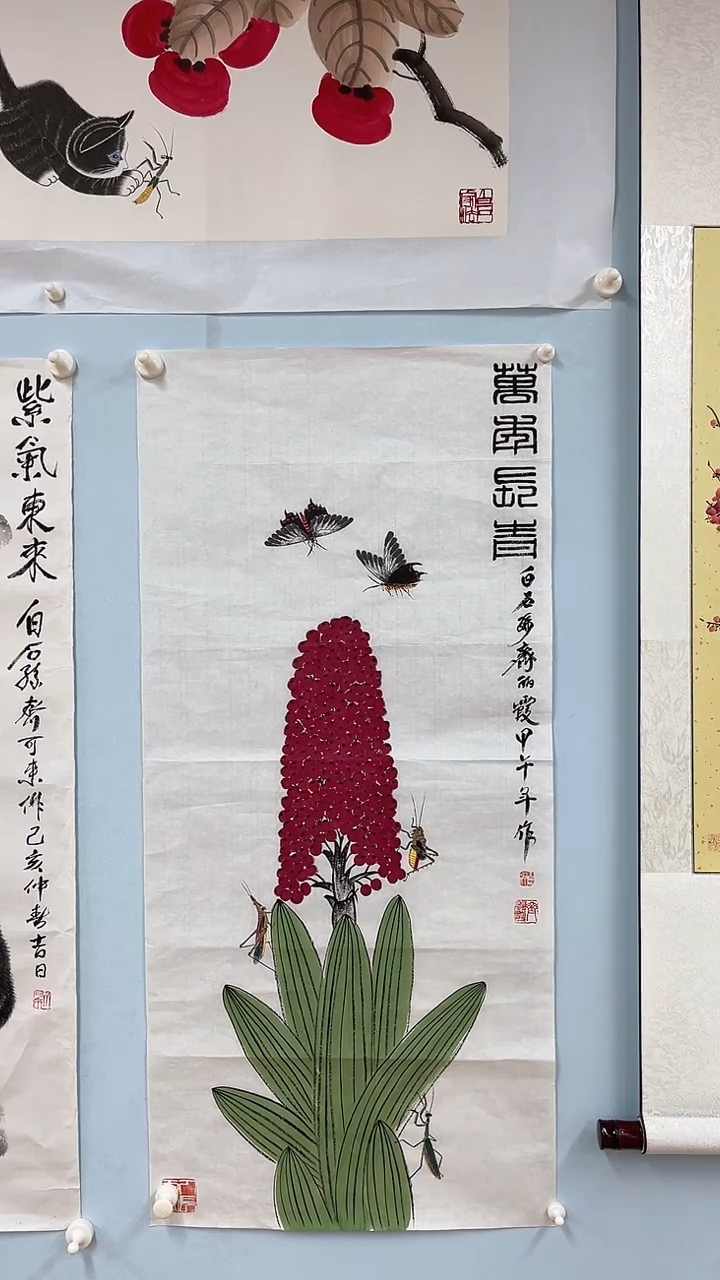 萬年長青
白石孫齊丽霞甲午年作
紫氣東來
白石孫齊可來作己亥仲春吉日